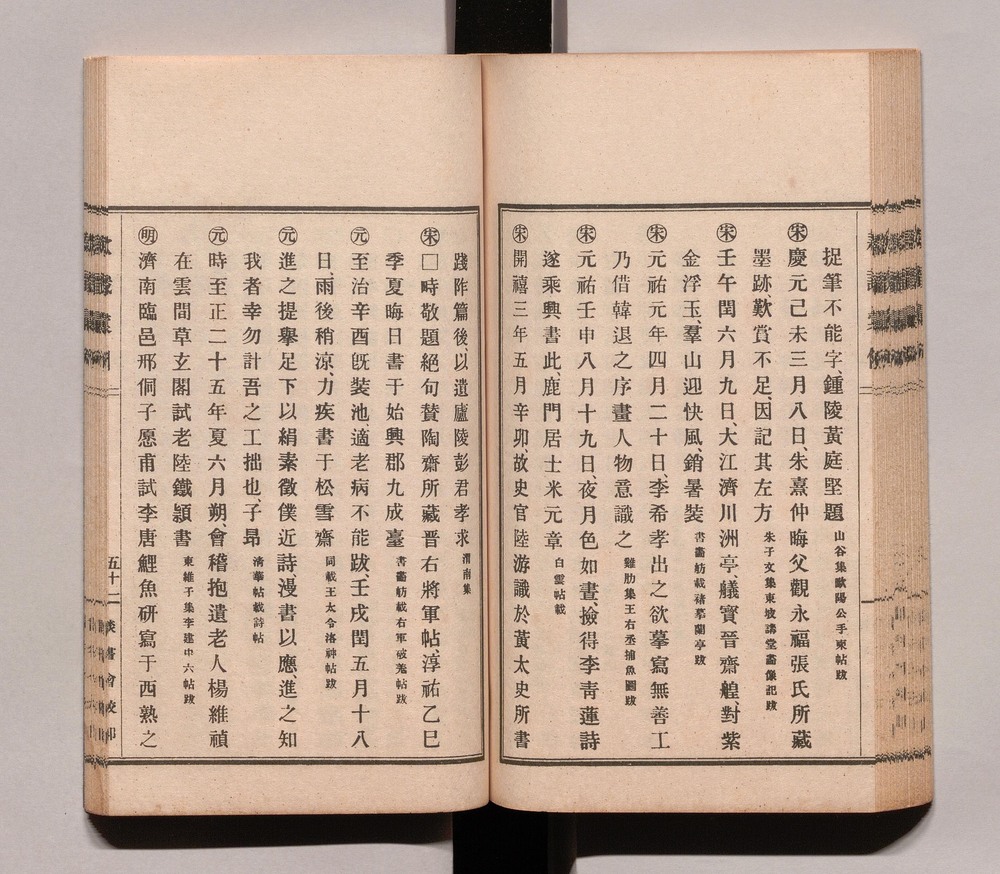 捉筆不能字、鍾陵黃庭堅題 山谷集歐陽公手柬帖跋
㊁宋慶元己未三月八日、朱熹仲晦父觀永福張氏所藏
墨跡歎賞不足、因記其左方 朱子文集東坡講堂畵像記跋
宋壬午閏六月九日、大江濟川洲亭、艤寶晉齋艎、對紫
金浮玉、羣山迎快風、銷暑裝 書畵舫載褚摹蘭亭跋
宋元祐元年四月二十日、李希孝出之欲摹寫無善工
乃借韓退之序畫人物意識之 雞肋集王右丞捕魚圖跋
宋元祐壬申八月十九日、夜月色如晝、撿得李靑蓮詩
遂乘興書此、鹿門居士米元章 白雲帖載
宋開禧三年五月辛卯、故史官陸游識於黃太史所書
踐阼篇後、以遺廬陵彭君孝求 渭南集
宋□時敬題絕句贊陶齋所藏晉右將軍帖、淳祐乙巳
季夏晦日書于始興郡九成臺 書畵舫載右軍破羗帖跋
元至治辛酉旣裝池、適老病不能跋、壬戌閏五月十八
日、雨後稍涼、力疾書于松雪齋 同載王太令洛神帖跋
元進之提擧足下以絹素徵僕近詩、漫書以應、進之知
我者幸勿計吾之工拙也、子昻 淸華帖載詩帖
元時至正二十五年夏六月朔、會稽抱遺老人楊維禎
在雲間草玄閣試老陸鐵潁書 東維子集李建中六帖跋
明濟南臨邑邢侗子愿甫試李唐鯉魚研寫于西熟之
五十二
談書會校印